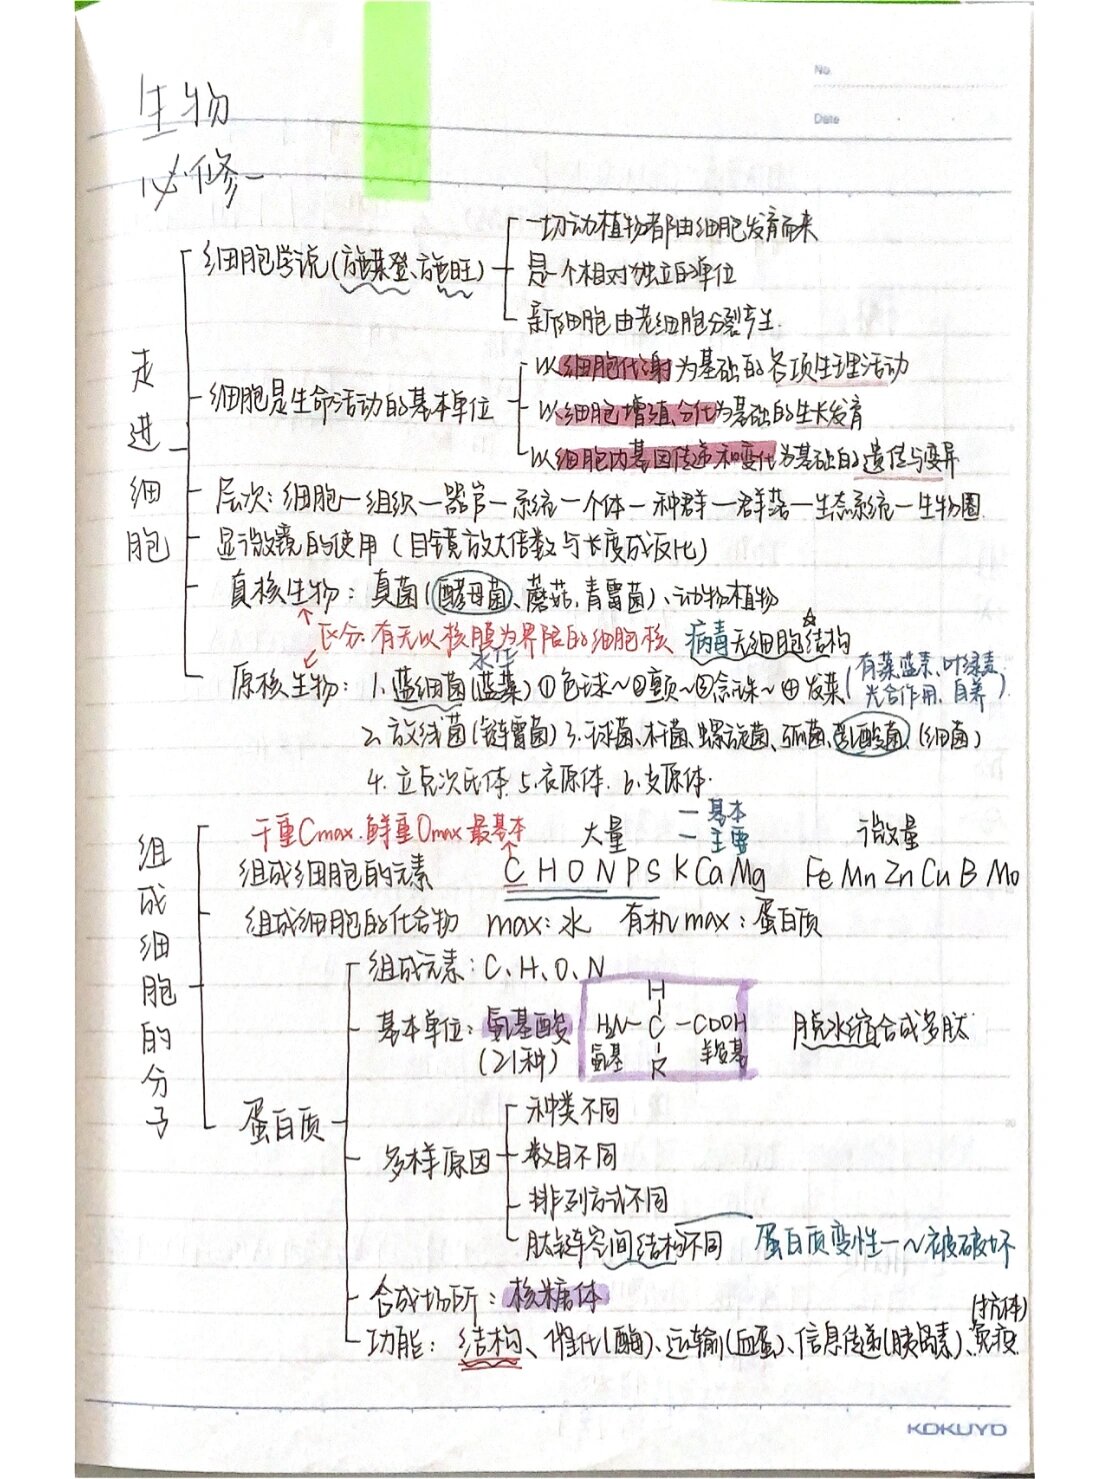 No.
Date
生物
必修一
走进细胞
细胞学说(施莱登、施旺)
一切动植物都由细胞发育而来
是一个相对独立的单位
新细胞由老细胞分裂产生.
细胞是生命活动的基本单位
以细胞代谢为基础的各项生理活动
以细胞增殖、分化为基础的生长发育
以细胞内基因传递和变化为基础的遗传与变异
层次:细胞一组织一器官一系统一个体一种群一群落一生态系统一生物圈
显微镜的使用(目镜放大倍数与长度成反比)
真核生物:真菌(酵母菌、蘑菇、青霉菌)、动物植物
区分:有无以核膜为界限的细胞核 病毒无细胞结构☆
水华
原核生物:1.蓝细菌(蓝藻)①色球~②颤~③念珠~④发菜(有藻蓝素、叶绿素
光合作用、自养)
2.放线菌(链霉菌)3.球菌、杆菌、螺旋菌、弧菌、乳酸菌(细菌)
4.立克次氏体.5.衣原体.6.支原体.
组成细胞的分子
干重Cmax.鲜重Omax 最基本 大量 一基本 微量
一主要
组成细胞的元素 C H O N P S K Ca Mg Fe Mn Zn Cu B Mo
组成细胞的化合物 max:水 有机max:蛋白质
蛋白质
组成元素:C、H、O、N
基本单位:氨基酸
(21种)
H
H₂N－C－COOH 脱水缩合成多肽
氨基 R 羧基
多样原因
种类不同
数目不同
排列方式不同
肽链空间结构不同 蛋白质变性一~被破坏
合成场所:核糖体
(抗体)
功能:结构、催化(酶)、运输(血蛋)、信息传递(胰岛素)、免疫.
KOKUYO